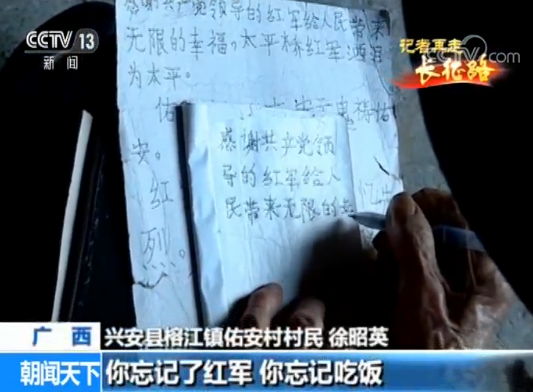 感谢共产党领导的红军给人民带来
无限的幸福。太平桥红军洒泪
为太平。
佑
安。
红
烈。
感谢共产党领
导的红军给人
民带来无限的幸
CCTV 13
新闻
CCTV.com
记者再走
长征路
广西
兴安县榕江镇佑安村村民 徐昭英
朝闻天下
你忘记了红军 你忘记吃饭